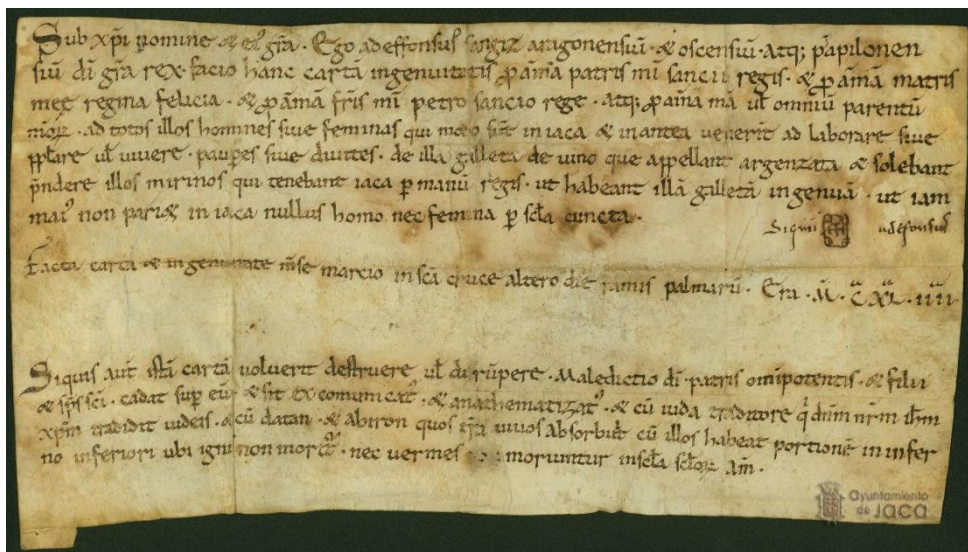 Sub xp̄i nomine & ei᷒ gr̄a. Ego adeffonsus sangiz aragonensiū & oscensiū atq; pāpilonen
siū dī gr̄a rex. facio hanc cartā ingenuitatis p̄ anīma patris mī sancii regis. & p̄ anīmā matris
meę regina felicia. & p̄ anīmā fr̄is mī petro sancio rege. atq; p̄ anīma mā ul̄ omniū parentū
mōꝝ. ad totos illos homines sive feminas qui modo sūt in iaca & in antea venerīt ad laborare sive
pp̄lare ul̄ vivere. paup̄es sive divites. de illa gilleta de vino que appellant argenzata & solebant
p̄ndere illos mirinos qui tenebant iaca p̄ manū regis. ut habeant illā gilletā ingenuā. ut iam
mai᷒ non pari& in iaca nullus homo nec femina p̄ sc̄la cuncta.
Signū adefonsus
Facta carta & ingenuitate m̄se marcio in sc̄a cruce altero die ramis palmarū. Era. M̄. C̄ XL. iiii.
Siquis aut̄ istā cartā voluerit destruere ul̄ dirūpere. Maledictio dī patris om̄ipotentis. & filii
& sp̄s sc̄i. cadat sup̄ eū & sit excomunicat᷒. & anathematizat᷒. & cū iuda traditore q̄ dn̄m nr̄m ih̄m
xp̄m tradidit iudeis. & cū datan. & abiron quos vivos absorbuit cū illos habeat portionē in infer
no inferiori ubi ignis non morit᷒. nec vermes non moriuntur in sc̄la sc̄loꝝ am̄.
Ayuntamiento
de Jaca